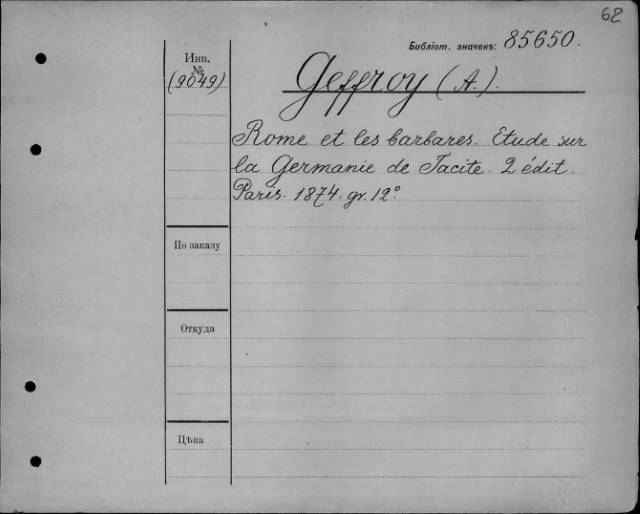 62
Библіот. значекъ: 85650.
Инв. №
(9049)
Geffroy (A.).
Rome et les barbares. Etude sur
la Germanie de Tacite. 2 édit.
Paris. 1874. gr. 12°
По заказу
Откуда
Цѣна